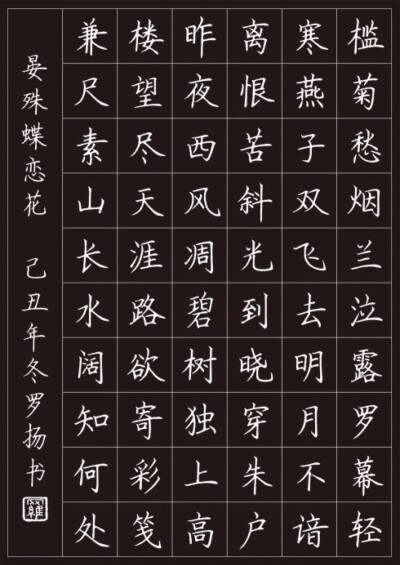 槛菊愁烟兰泣露罗幕轻
寒燕子双飞去明月不谙
离恨苦斜光到晓穿朱户
昨夜西风凋碧树独上高
楼望尽天涯路欲寄彩笺
兼尺素山长水阔知何处
晏殊蝶恋花 己丑年冬罗扬书
羅